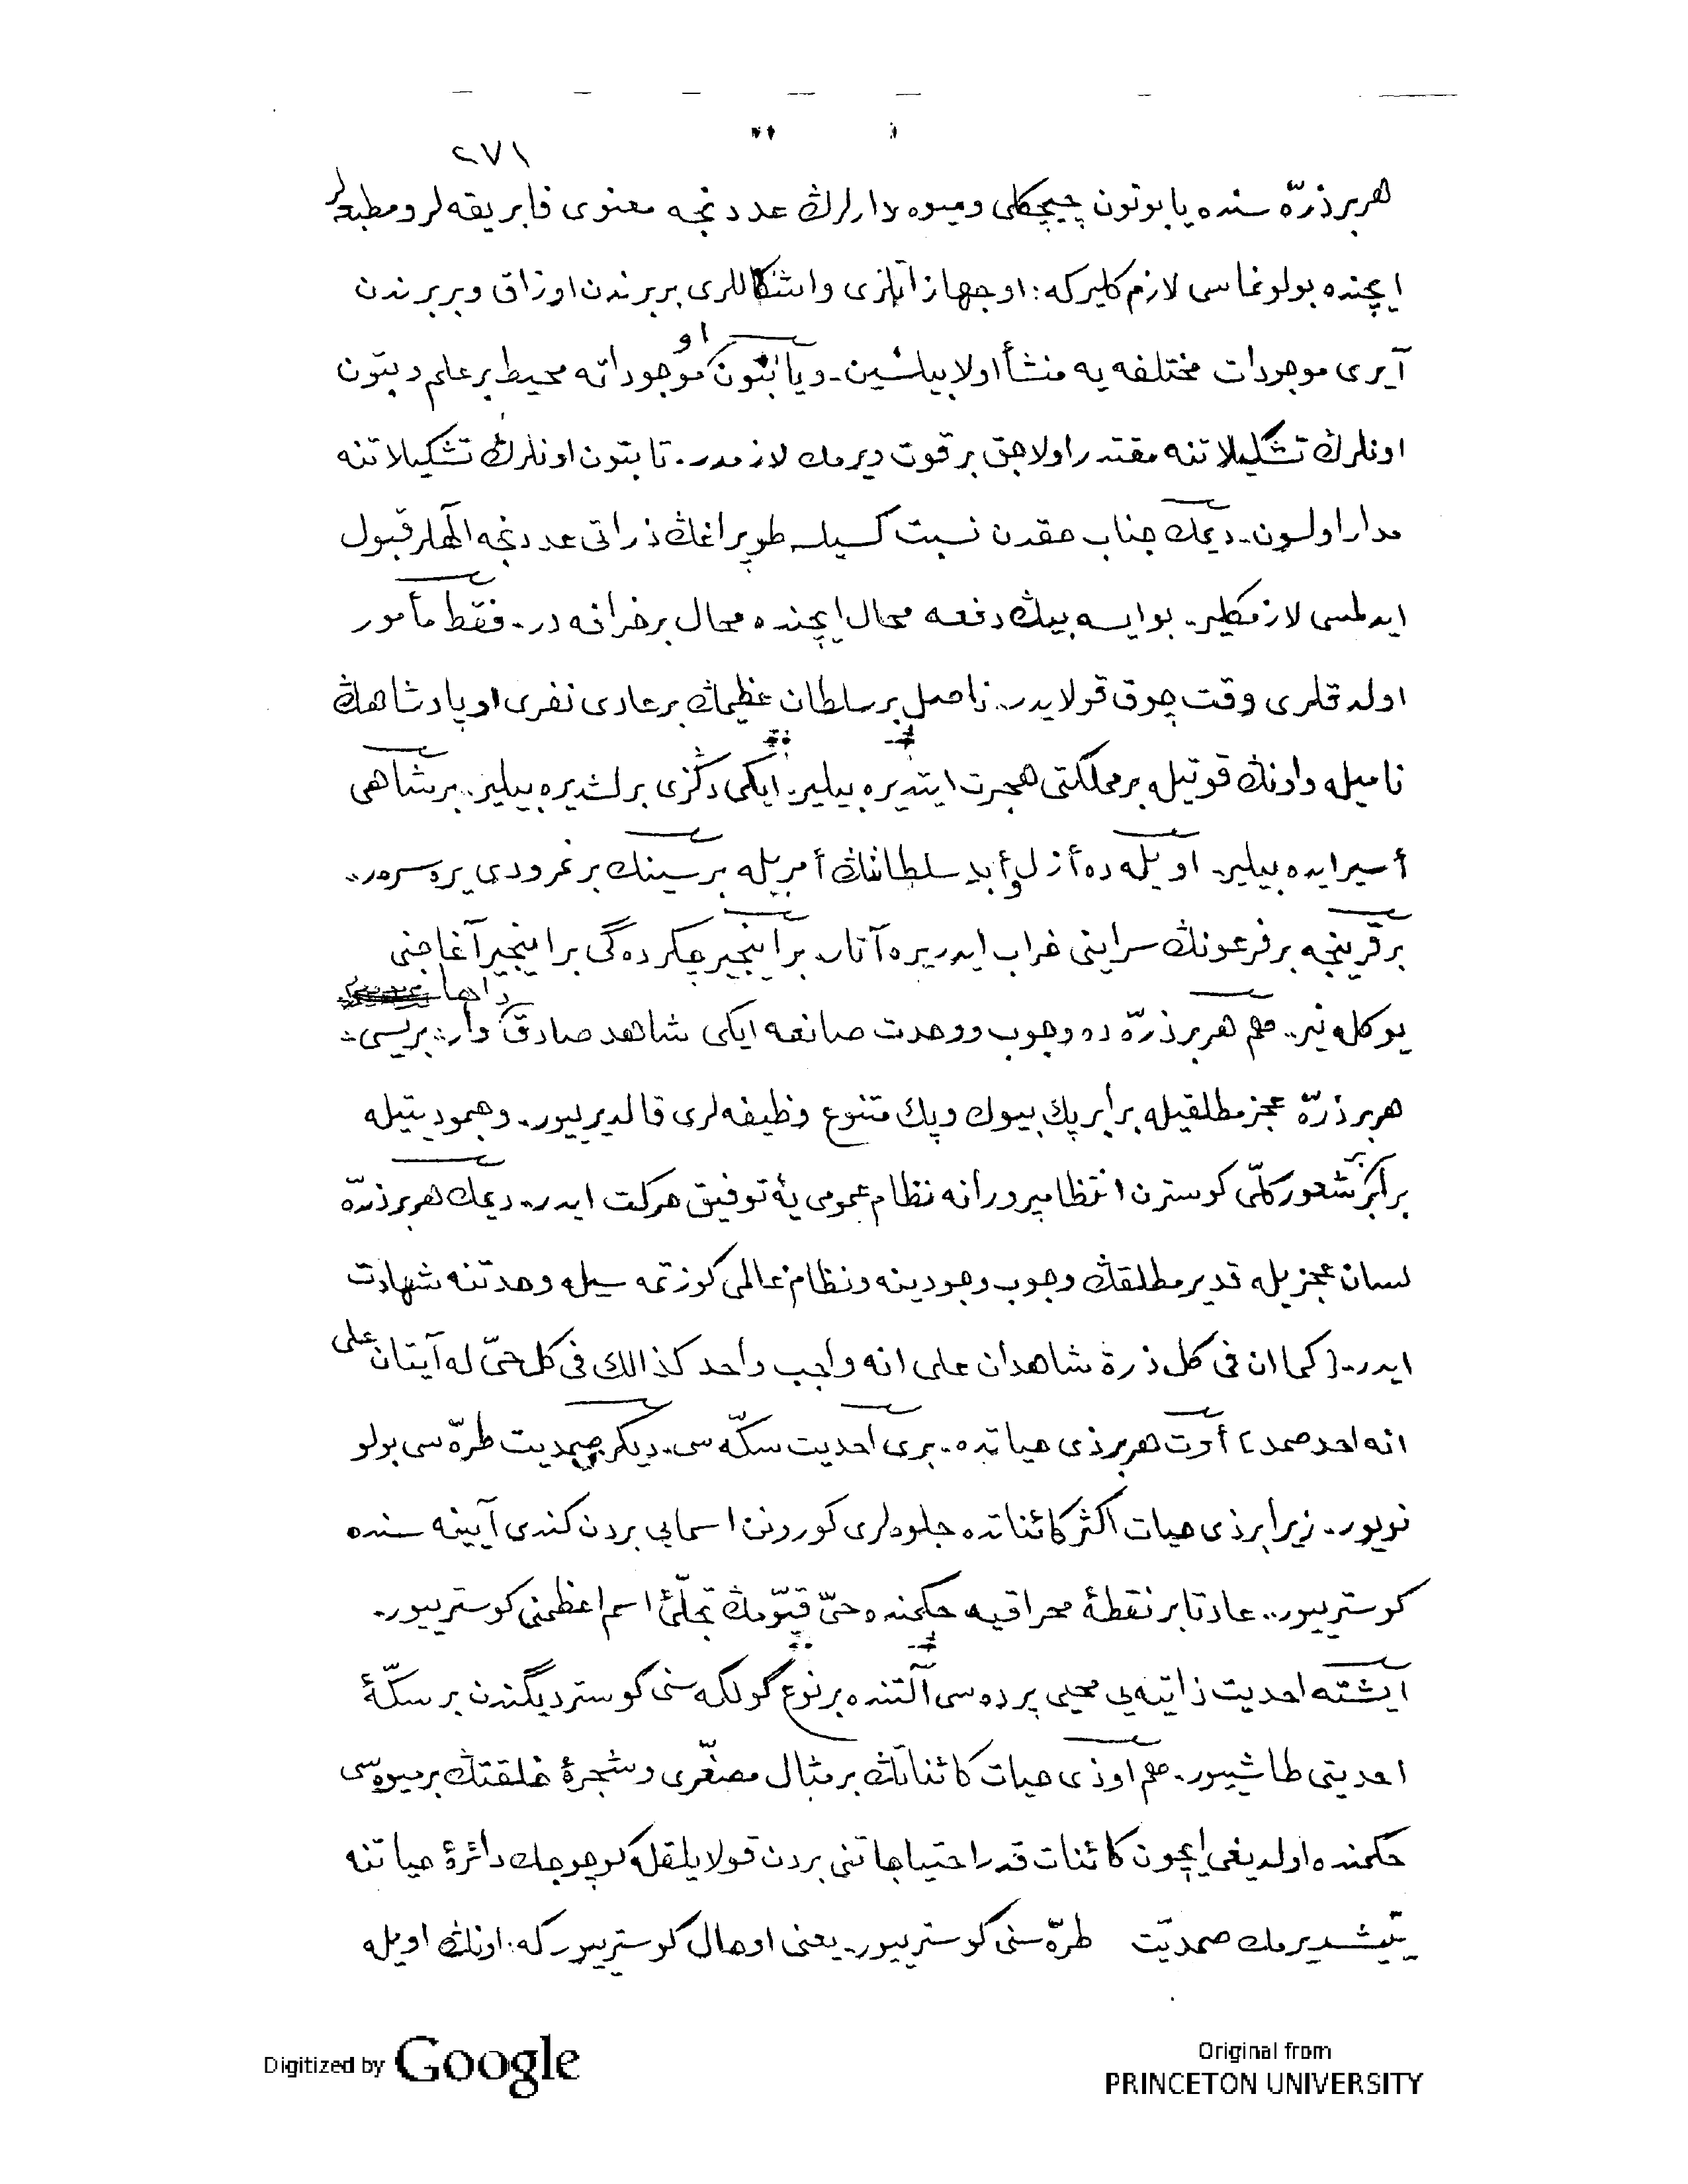 ٢٧١
هربر ذرّه سنده يا بوتون چيچكلى وميوه دارلرڭ عددنجه معنوى فابريقه لر ومطبعه لر
ايچنده بولونماسى لازم كليركه: او جهازاتلرى واشكاللرى بربرندن اوزاق وبربرندن
آيرى موجودات مختلفه يه منشأ اولابيلسين. ويا بتون او موجوداته محيط بر علم وبتون
اونلرڭ تشكيلاتنه مقتدر اولاجق بر قوت ويرمك لازمدر. تا بتون اونلرڭ تشكيلاتنه
مدار اولسون. ديمك جناب حقدن نسبت كسيلسه طوپراغڭ ذراتى عددنجه الٰهلر قبول
ايدلمسى لازمكلير. بو ايسه بيڭ دفعه محال ايچنده محال بر خرافه در. فقط مأمور
اولدقلرى وقت چوق قولايدر. ناصل بر سلطان عظيمڭ بر عادى نفرى او پادشاهڭ
ناميله واونڭ قوتيله بر مملكتى هجرت ايتديره بيلير. ايكى دڭزى برلشديره بيلير. بر شاهى
أسير ايده بيلير. اويله ده أزل وأبد سلطانڭ أمريله بر سينك بر نمرودى يره سرر..
بر قرينجه بر فرعونڭ سراينى خراب ايدر يره آتار. بر اينجير چكرده گى بر اينجير آغاجنى
يوكله نير.. هم هربر ذرّه ده وجوب ووحدت صانعه ايكى شاهد صادق داها وار: بريسى:
هربر ذرّه عجز مطلقيله برابر پك بيوك وپك متنوع وظيفه لرى قالديرييور. وجموديتيله
برابر بر شعور كلّى كوسترن انتظامپرورانه نظام عمومى يه توفيق حركت ايدر. ديمك هربر ذرّه
لسان عجزيله قدير مطلقڭ وجوب وجودينه ونظام عالمى كوزتمه سيله وحدتنه شهادت
ايدر. [كما ان فى كل ذرة شاهدان على انه واجب واحد كذالك فى كل حىّ له آيتان على
انه احد صمد] أوت هربر ذى حياتده. برى احديت سكّه سى. ديكر صمديت طرّه سى بولو
نويور. زيرا بر ذى حيات اكثر كائناتده جلوه لرى كورونن اسمايى بردن كندى آيينه سنده
كوسترييور.. عادتا بر نقطۀ محراقيه حكمنده حىّ قيّومڭ تجلّئ اسم اعظمنى كوسترييور.
ايشته احديت ذاتيه يى محيى پرده سى آلتنده بر نوع گولكه سنى كوسترديگندن بر سكّۀ
احديتى طاشييور. هم او ذى حيات كائناتڭ بر مثال مصغّرى وشجرۀ خلقتڭ بر ميوه سى
حكمنده اولديغى ايچون كائنات قدر احتياجاتنى بردن قولايلقله كوچوجك دائرۀ حياتنه
يتيشديرمك صمديّت طرّه سنى كوسترييور. يعنى او حال كوسترييوركه: اونڭ اويله
Digitized by Google
Original from
PRINCETON UNIVERSITY